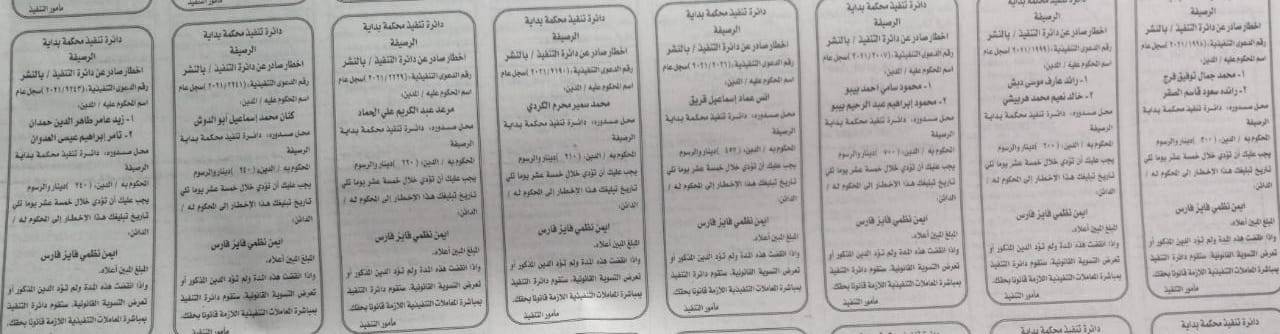 مأمور التنفيذ
مأمور التنفيذ
مأمور التنفيذ
دائرة تنفيذ محكمة بداية
الرصيفة
اخطار صادر عن دائرة التنفيذ / بالنشر
رقم الدعوى التنفيذية: (٢٠٢١/١٩٩٨) سجل عام
اسم المحكوم عليه / المدين:
١- محمد جمال توفيق فرج
٢- رائده سعود قاسم الصقر
محل صدوره: دائرة تنفيذ محكمة بداية
الرصيفة
المحكوم به / الدين: (٣٠٠) دينار والرسوم
يجب عليك أن تؤدي خلال خمسة عشر يوما تلي
تاريخ تبليغك هذا الإخطار إلى المحكوم له /
الدائن:
ايمن نظمي فايز فارس
المبلغ المبين أعلاه.
وإذا انقضت هذه المدة ولم تؤد الدين المذكور أو
تعرض التسوية القانونية، ستقوم دائرة التنفيذ
بمباشرة المعاملات التنفيذية اللازمة قانونا بحقك.
مأمور التنفيذ
دائرة تنفيذ محكمة بداية
الرصيفة
اخطار صادر عن دائرة التنفيذ / بالنشر
رقم الدعوى التنفيذية: (٢٠٢١/١٩٩٩) سجل عام
اسم المحكوم عليه / المدين:
١- رائد عارف موسى دبش
٢- خالد نعيم محمد هربيشي
محل صدوره: دائرة تنفيذ محكمة بداية
الرصيفة
المحكوم به / الدين: (٢٠٠) دينار والرسوم
يجب عليك أن تؤدي خلال خمسة عشر يوما تلي
تاريخ تبليغك هذا الإخطار إلى المحكوم له /
الدائن:
ايمن نظمي فايز فارس
المبلغ المبين أعلاه.
وإذا انقضت هذه المدة ولم تؤد الدين المذكور أو
تعرض التسوية القانونية، ستقوم دائرة التنفيذ
بمباشرة المعاملات التنفيذية اللازمة قانونا بحقك.
مأمور التنفيذ
دائرة تنفيذ محكمة بداية
الرصيفة
اخطار صادر عن دائرة التنفيذ / بالنشر
رقم الدعوى التنفيذية: (٢٠٢١/٢٠٠٧) سجل عام
اسم المحكوم عليه / المدين:
١- محمود سامي احمد بيبو
٢- محمود إبراهيم عبد الرحيم بيبو
محل صدوره: دائرة تنفيذ محكمة بداية
الرصيفة
المحكوم به / الدين: (٧٠٠) دينار والرسوم
يجب عليك أن تؤدي خلال خمسة عشر يوما تلي
تاريخ تبليغك هذا الإخطار إلى المحكوم له /
الدائن:
ايمن نظمي فايز فارس
المبلغ المبين أعلاه.
وإذا انقضت هذه المدة ولم تؤد الدين المذكور أو
تعرض التسوية القانونية، ستقوم دائرة التنفيذ
بمباشرة المعاملات التنفيذية اللازمة قانونا بحقك.
مأمور التنفيذ
دائرة تنفيذ محكمة بداية
الرصيفة
اخطار صادر عن دائرة التنفيذ / بالنشر
رقم الدعوى التنفيذية: (٢٠٢١/٢٠٢٦) سجل عام
اسم المحكوم عليه / المدين:
انس عماد إسماعيل قريق
محل صدوره: دائرة تنفيذ محكمة بداية
الرصيفة
المحكوم به / الدين: (٤٥٢) دينار والرسوم
يجب عليك أن تؤدي خلال خمسة عشر يوما تلي
تاريخ تبليغك هذا الإخطار إلى المحكوم له /
الدائن:
ايمن نظمي فايز فارس
المبلغ المبين أعلاه.
وإذا انقضت هذه المدة ولم تؤد الدين المذكور أو
تعرض التسوية القانونية، ستقوم دائرة التنفيذ
بمباشرة المعاملات التنفيذية اللازمة قانونا بحقك.
مأمور التنفيذ
دائرة تنفيذ محكمة بداية
الرصيفة
اخطار صادر عن دائرة التنفيذ / بالنشر
رقم الدعوى التنفيذية: (٢٠٢١/٢١٩٠) سجل عام
اسم المحكوم عليه / المدين:
محمد سمير محرم الكردي
محل صدوره: دائرة تنفيذ محكمة بداية
الرصيفة
المحكوم به / الدين: (٢١٠) دينار والرسوم
يجب عليك أن تؤدي خلال خمسة عشر يوما تلي
تاريخ تبليغك هذا الإخطار إلى المحكوم له /
الدائن:
ايمن نظمي فايز فارس
المبلغ المبين أعلاه.
وإذا انقضت هذه المدة ولم تؤد الدين المذكور أو
تعرض التسوية القانونية، ستقوم دائرة التنفيذ
بمباشرة المعاملات التنفيذية اللازمة قانونا بحقك.
مأمور التنفيذ
دائرة تنفيذ محكمة بداية
الرصيفة
اخطار صادر عن دائرة التنفيذ / بالنشر
رقم الدعوى التنفيذية: (٢٠٢١/٢٢٢٩) سجل عام
اسم المحكوم عليه / المدين:
مرعد عبد الكريم علي الحماد
محل صدوره: دائرة تنفيذ محكمة بداية
الرصيفة
المحكوم به / الدين: (٢٢٠) دينار والرسوم
يجب عليك أن تؤدي خلال خمسة عشر يوما تلي
تاريخ تبليغك هذا الإخطار إلى المحكوم له /
الدائن:
ايمن نظمي فايز فارس
المبلغ المبين أعلاه.
وإذا انقضت هذه المدة ولم تؤد الدين المذكور أو
تعرض التسوية القانونية، ستقوم دائرة التنفيذ
بمباشرة المعاملات التنفيذية اللازمة قانونا بحقك.
مأمور التنفيذ
دائرة تنفيذ محكمة بداية
الرصيفة
اخطار صادر عن دائرة التنفيذ / بالنشر
رقم الدعوى التنفيذية: (٢٠٢١/٢٢٤١) سجل عام
اسم المحكوم عليه / المدين:
كنان محمد إسماعيل ابو الدوش
محل صدوره: دائرة تنفيذ محكمة بداية
الرصيفة
المحكوم به / الدين: (٢٤٠) دينار والرسوم
يجب عليك أن تؤدي خلال خمسة عشر يوما تلي
تاريخ تبليغك هذا الإخطار إلى المحكوم له /
الدائن:
ايمن نظمي فايز فارس
المبلغ المبين أعلاه.
وإذا انقضت هذه المدة ولم تؤد الدين المذكور أو
تعرض التسوية القانونية، ستقوم دائرة التنفيذ
بمباشرة المعاملات التنفيذية اللازمة قانونا بحقك.
مأمور التنفيذ
دائرة تنفيذ محكمة بداية
الرصيفة
اخطار صادر عن دائرة التنفيذ / بالنشر
رقم الدعوى التنفيذية: (٢٠٢١/٢٢٤٣) سجل عام
اسم المحكوم عليه / المدين:
١- زيد عامر طاهر الدين حمدان
٢- تامر إبراهيم عيسى العدوان
محل صدوره: دائرة تنفيذ محكمة بداية
الرصيفة
المحكوم به / الدين: (٢٤٠) دينار والرسوم
يجب عليك أن تؤدي خلال خمسة عشر يوما تلي
تاريخ تبليغك هذا الإخطار إلى المحكوم له /
الدائن:
ايمن نظمي فايز فارس
المبلغ المبين أعلاه.
وإذا انقضت هذه المدة ولم تؤد الدين المذكور أو
تعرض التسوية القانونية، ستقوم دائرة التنفيذ
بمباشرة المعاملات التنفيذية اللازمة قانونا بحقك.
مأمور التنفيذ
دائرة تنفيذ محكمة بداية
دائرة تنفيذ محكمة بداية